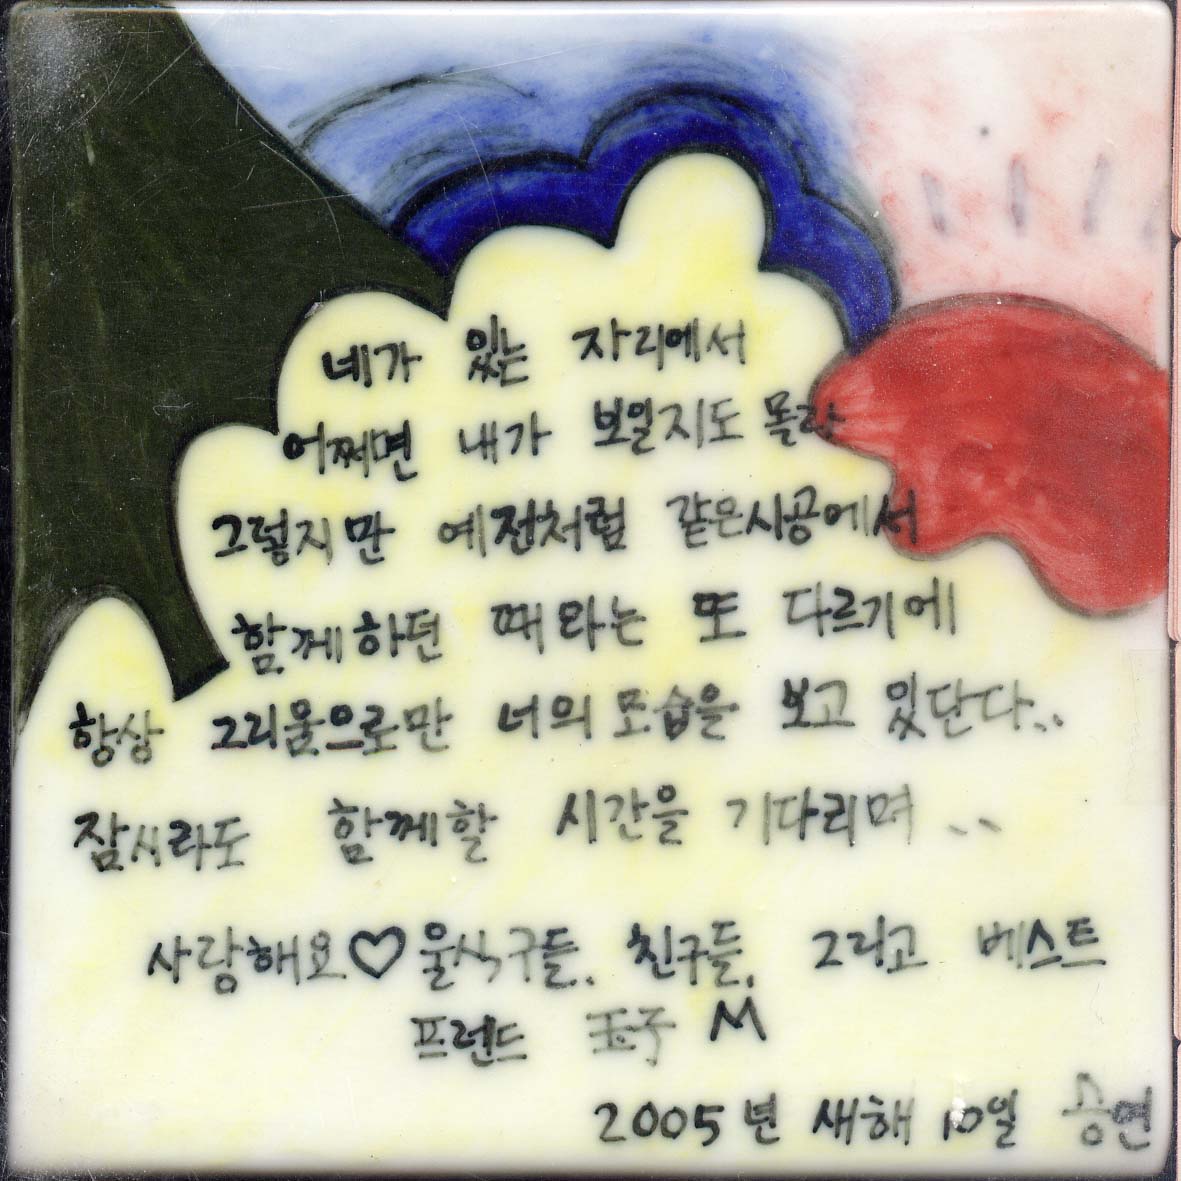 네가 있는 자리에서
어쩌면 내가 보일지도 몰라
그렇지만 예전처럼 같은시공에서
함께하던 때와는 또 다르기에
항상 그리움으로만 너의 모습을 보고 있단다..
잠시라도 함께할 시간을 기다리며 ..
사랑해요♡울식구들. 친구들. 그리고 베스트
프렌드 玉子 M
2005년 새해 10일 공연